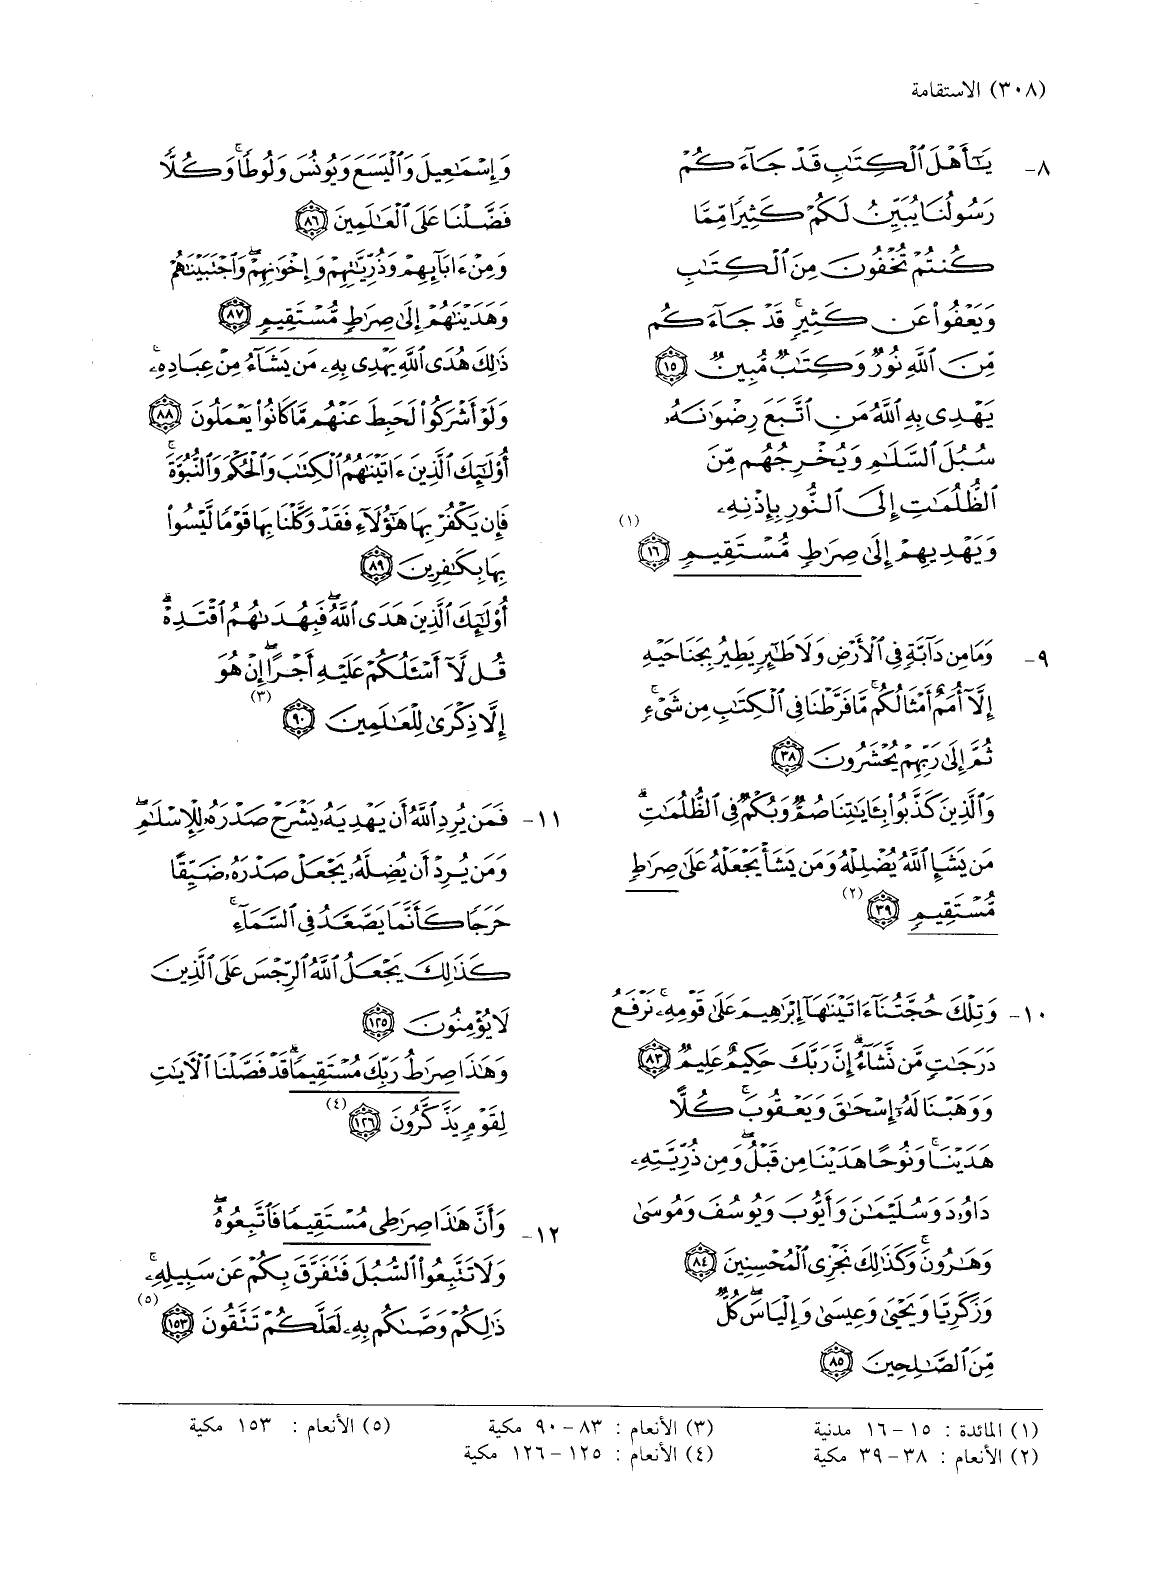 (٣٠٨) الاستقامة
٨- يَـٰٓأَهْلَ ٱلْكِتَـٰبِ قَدْ جَآءَكُمْ
رَسُولُنَا يُبَيِّنُ لَكُمْ كَثِيرًا مِّمَّا
كُنتُمْ تُخْفُونَ مِنَ ٱلْكِتَـٰبِ
وَيَعْفُوا۟ عَن كَثِيرٍ ۚ قَدْ جَآءَكُم
مِّنَ ٱللَّهِ نُورٌ وَكِتَـٰبٌ مُّبِينٌ ﴿١٥﴾
يَهْدِى بِهِ ٱللَّهُ مَنِ ٱتَّبَعَ رِضْوَٰنَهُۥ
سُبُلَ ٱلسَّلَـٰمِ وَيُخْرِجُهُم مِّنَ
ٱلظُّلُمَـٰتِ إِلَى ٱلنُّورِ بِإِذْنِهِۦ
وَيَهْدِيهِمْ إِلَىٰ صِرَٰطٍ مُّسْتَقِيمٍ ﴿١٦﴾ (١)
٩- وَمَا مِن دَآبَّةٍ فِى ٱلْأَرْضِ وَلَا طَـٰٓئِرٍ يَطِيرُ بِجَنَاحَيْهِ
إِلَّآ أُمَمٌ أَمْثَالُكُم ۚ مَّا فَرَّطْنَا فِى ٱلْكِتَـٰبِ مِن شَىْءٍ ۚ
ثُمَّ إِلَىٰ رَبِّهِمْ يُحْشَرُونَ ﴿٣٨﴾
وَٱلَّذِينَ كَذَّبُوا۟ بِـَٔايَـٰتِنَا صُمٌّ وَبُكْمٌ فِى ٱلظُّلُمَـٰتِ ۗ
مَن يَشَإِ ٱللَّهُ يُضْلِلْهُ وَمَن يَشَأْ يَجْعَلْهُ عَلَىٰ صِرَٰطٍ
مُّسْتَقِيمٍ ﴿٣٩﴾ (٢)
١٠- وَتِلْكَ حُجَّتُنَآ ءَاتَيْنَـٰهَآ إِبْرَٰهِيمَ عَلَىٰ قَوْمِهِۦ ۚ نَرْفَعُ
دَرَجَـٰتٍ مَّن نَّشَآءُ ۗ إِنَّ رَبَّكَ حَكِيمٌ عَلِيمٌ ﴿٨٣﴾
وَوَهَبْنَا لَهُۥٓ إِسْحَـٰقَ وَيَعْقُوبَ ۚ كُلًّا
هَدَيْنَا ۚ وَنُوحًا هَدَيْنَا مِن قَبْلُ ۖ وَمِن ذُرِّيَّتِهِۦ
دَاوُۥدَ وَسُلَيْمَـٰنَ وَأَيُّوبَ وَيُوسُفَ وَمُوسَىٰ
وَهَـٰرُونَ ۚ وَكَذَٰلِكَ نَجْزِى ٱلْمُحْسِنِينَ ﴿٨٤﴾
وَزَكَرِيَّا وَيَحْيَىٰ وَعِيسَىٰ وَإِلْيَاسَ ۖ كُلٌّ
مِّنَ ٱلصَّـٰلِحِينَ ﴿٨٥﴾
وَإِسْمَـٰعِيلَ وَٱلْيَسَعَ وَيُونُسَ وَلُوطًا ۚ وَكُلًّا
فَضَّلْنَا عَلَى ٱلْعَـٰلَمِينَ ﴿٨٦﴾
وَمِنْ ءَابَآئِهِمْ وَذُرِّيَّـٰتِهِمْ وَإِخْوَٰنِهِمْ ۖ وَٱجْتَبَيْنَـٰهُمْ
وَهَدَيْنَـٰهُمْ إِلَىٰ صِرَٰطٍ مُّسْتَقِيمٍ ﴿٨٧﴾
ذَٰلِكَ هُدَى ٱللَّهِ يَهْدِى بِهِۦ مَن يَشَآءُ مِنْ عِبَادِهِۦ ۚ
وَلَوْ أَشْرَكُوا۟ لَحَبِطَ عَنْهُم مَّا كَانُوا۟ يَعْمَلُونَ ﴿٨٨﴾
أُو۟لَـٰٓئِكَ ٱلَّذِينَ ءَاتَيْنَـٰهُمُ ٱلْكِتَـٰبَ وَٱلْحُكْمَ وَٱلنُّبُوَّةَ ۚ
فَإِن يَكْفُرْ بِهَا هَـٰٓؤُلَآءِ فَقَدْ وَكَّلْنَا بِهَا قَوْمًا لَّيْسُوا۟
بِهَا بِكَـٰفِرِينَ ﴿٨٩﴾
أُو۟لَـٰٓئِكَ ٱلَّذِينَ هَدَى ٱللَّهُ ۖ فَبِهُدَىٰهُمُ ٱقْتَدِهْ ۗ
قُل لَّآ أَسْـَٔلُكُمْ عَلَيْهِ أَجْرًا ۖ إِنْ هُوَ
إِلَّا ذِكْرَىٰ لِلْعَـٰلَمِينَ ﴿٩٠﴾ (٣)
١١- فَمَن يُرِدِ ٱللَّهُ أَن يَهْدِيَهُۥ يَشْرَحْ صَدْرَهُۥ لِلْإِسْلَـٰمِ ۖ
وَمَن يُرِدْ أَن يُضِلَّهُۥ يَجْعَلْ صَدْرَهُۥ ضَيِّقًا
حَرَجًا كَأَنَّمَا يَصَّعَّدُ فِى ٱلسَّمَآءِ ۚ
كَذَٰلِكَ يَجْعَلُ ٱللَّهُ ٱلرِّجْسَ عَلَى ٱلَّذِينَ
لَا يُؤْمِنُونَ ﴿١٢٥﴾
وَهَـٰذَا صِرَٰطُ رَبِّكَ مُسْتَقِيمًا ۗ قَدْ فَصَّلْنَا ٱلْـَٔايَـٰتِ
لِقَوْمٍ يَذَّكَّرُونَ ﴿١٢٦﴾ (٤)
١٢- وَأَنَّ هَـٰذَا صِرَٰطِى مُسْتَقِيمًا فَٱتَّبِعُوهُ ۖ
وَلَا تَتَّبِعُوا۟ ٱلسُّبُلَ فَتَفَرَّقَ بِكُمْ عَن سَبِيلِهِۦ ۚ
ذَٰلِكُمْ وَصَّىٰكُم بِهِۦ لَعَلَّكُمْ تَتَّقُونَ ﴿١٥٣﴾ (٥)
(١) المائدة : ١٥ - ١٦ مدنية
(٢) الأنعام : ٣٨ - ٣٩ مكية
(٣) الأنعام : ٨٣ - ٩٠ مكية
(٤) الأنعام : ١٢٥ - ١٢٦ مكية
(٥) الأنعام : ١٥٣ مكية